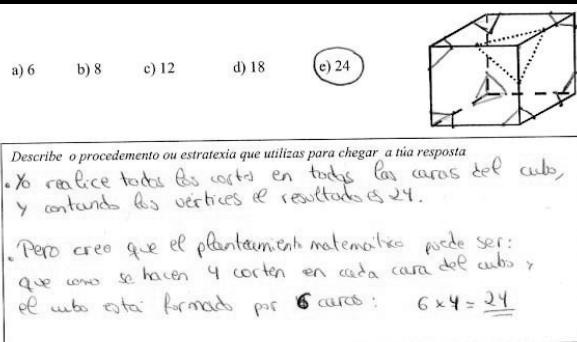 a) 6 b) 8 c) 12 d) 18 e) 24
Describe o procedemento ou estratexia que utilizas para chegar a túa resposta
. Yo realice todos los cortes en todas las caras del cubo,
y contando los vértices el resultado es 24.
. Pero creo que el planteamiento matemático puede ser:
que como se hacen 4 corten en cada cara del cubo y
el cubo esta formado por 6 caras: 6 x 4 = 24